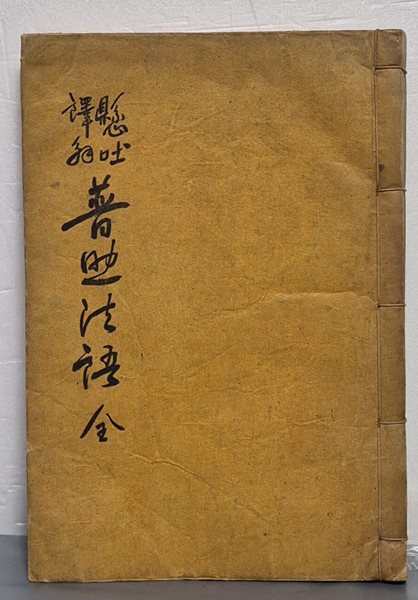 懸吐
譯解
普照法語 全